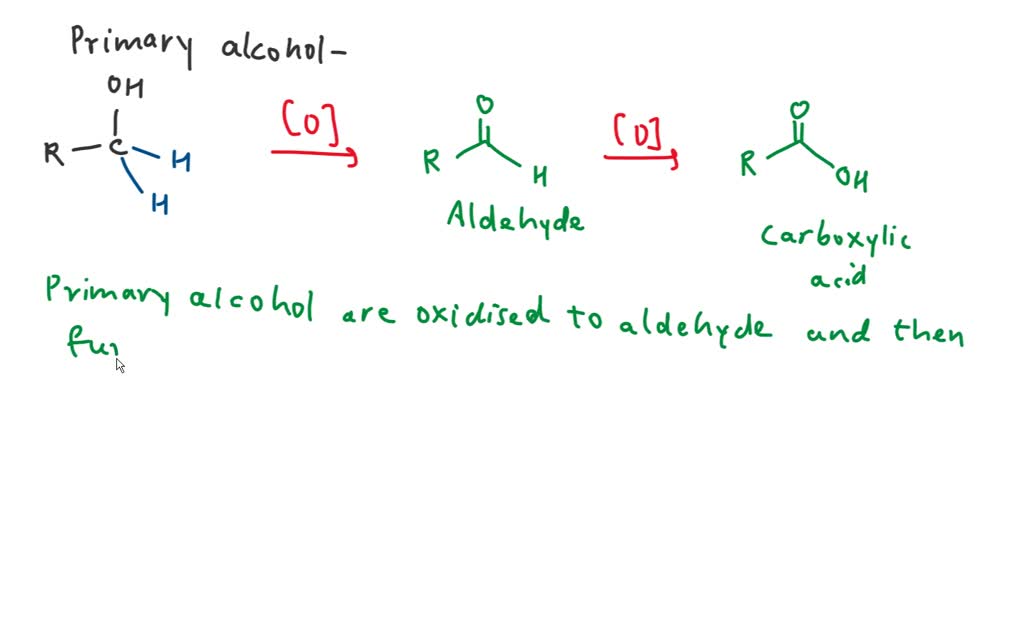 Primary alcohol-
OH
[O]
O
[O]
O
R C H
R H
R OH
H
Aldehyde
Carboxylic
acid
Primary alcohol are oxidised to aldehyde and then
fur